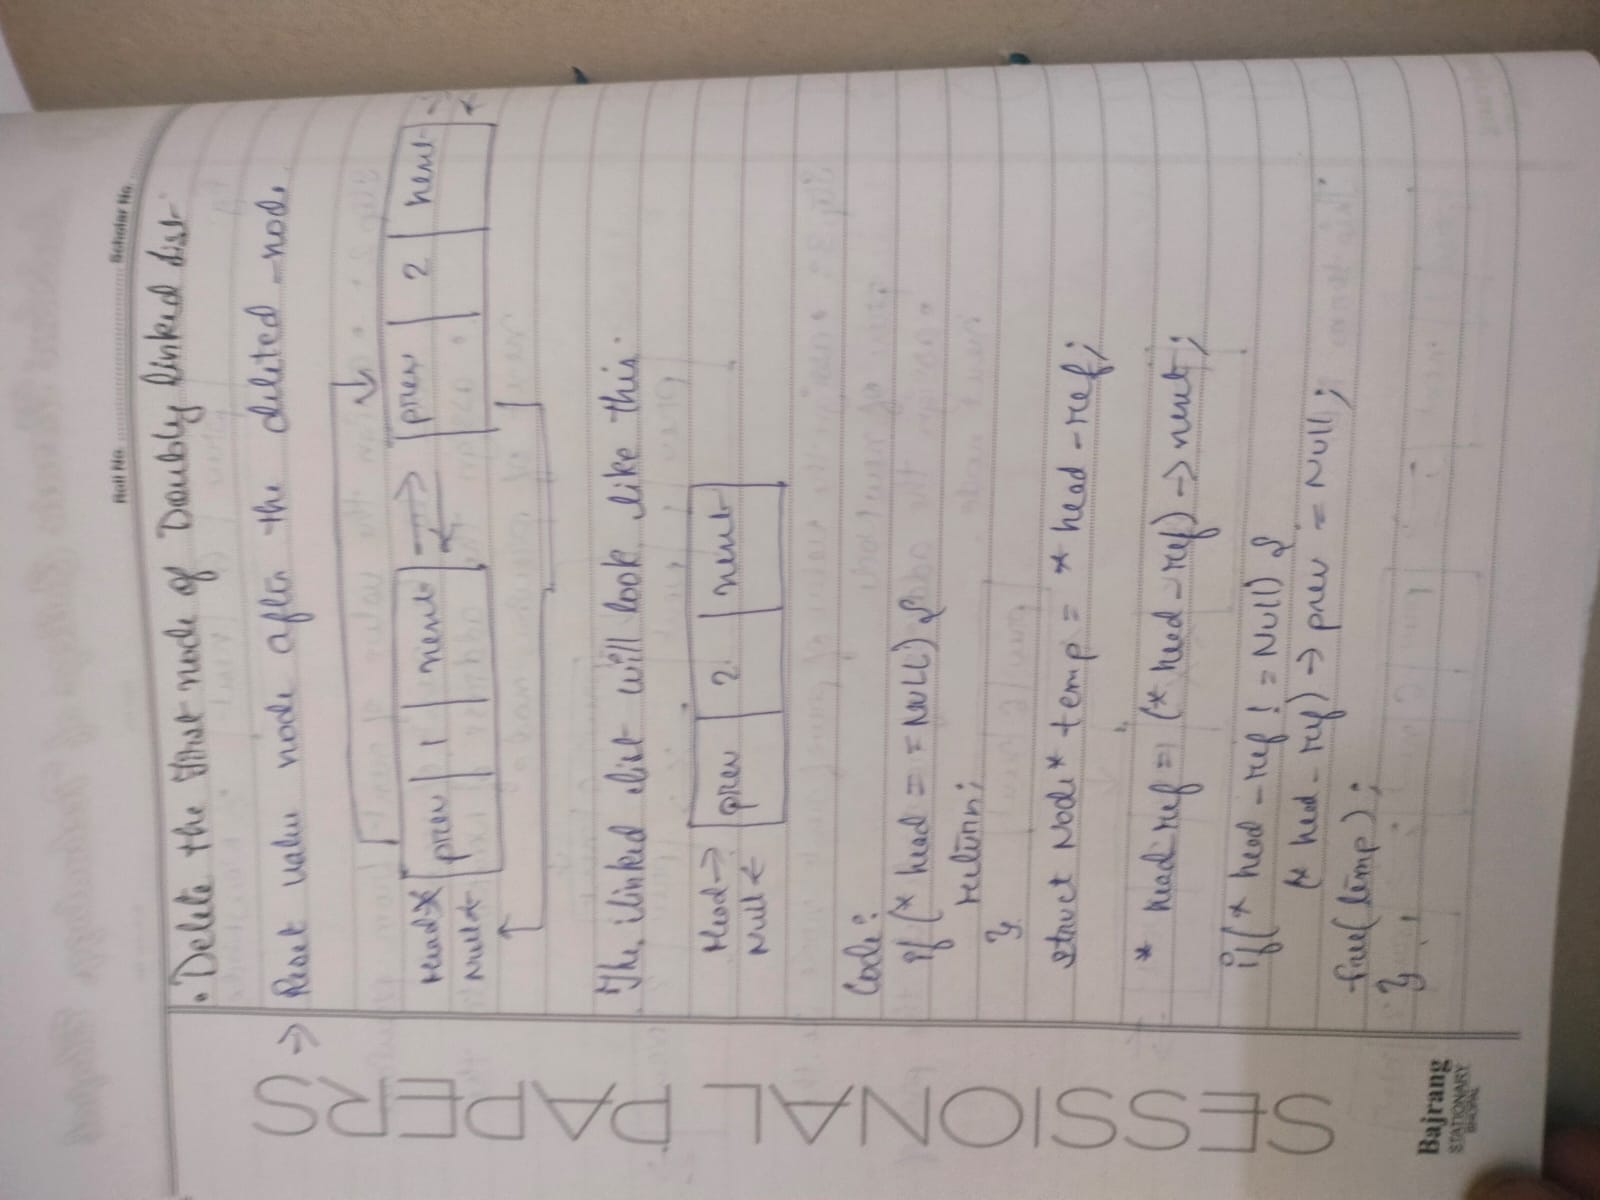 Roll No. Scholar No.
• Delete the first node of Doubly linked list
→ Reset value node after the deleted node
Head prev 1 next prev 2 next
Null
The linked list will look like this.
Head → prev 2 next
Null ←
Code:
if (* head = = NULL) {
return;
}
struct Node* temp = * head-ref;
* head ref = (* head-ref) → next;
if (* head-ref ! = Null) {
(* head-ref) → prev = Null;
free(temp);
}
SESSIONAL PAPERS
Bajrang
STATIONARY
BHOPAL